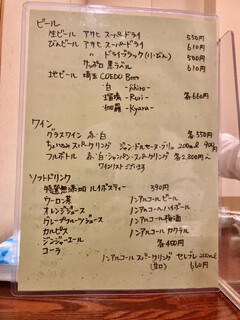 ビール
生ビール アサヒ スーパードライ 550円
びんビール アサヒ スーパードライ 610円
〃 ドライブラック(小びん) 500円
サッポロ 黒ラベル 610円
地ビール 埼玉 COEDO Beer
白 -Shiro-
瑠璃 -Ruri- 各660円
伽羅 -Kyara-
ワイン
グラスワイン 赤・白 各550円
ちょいのみスパークリング 200ml
フルボトル 赤・白・シャンパン・スパークリング 各2,800円〜
ワインリストございます
ソフトドリンク
特撰無添加 ルイボスティー 390円
ウーロン茶 ノンアルコールビール
オレンジジュース ノンアルコールハイボール
グレープフルーツジュース ノンアルコール梅酒
カルピス ノンアルコールカクテル
ジンジャーエール 各450円
コーラ
ノンアルコールスパークリング セレブレ 200ml
610円